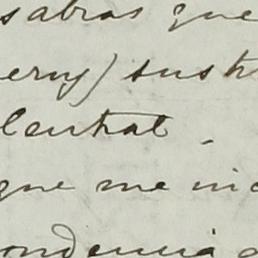 sabras que
erny) sust
Central.
que me in
ondencia